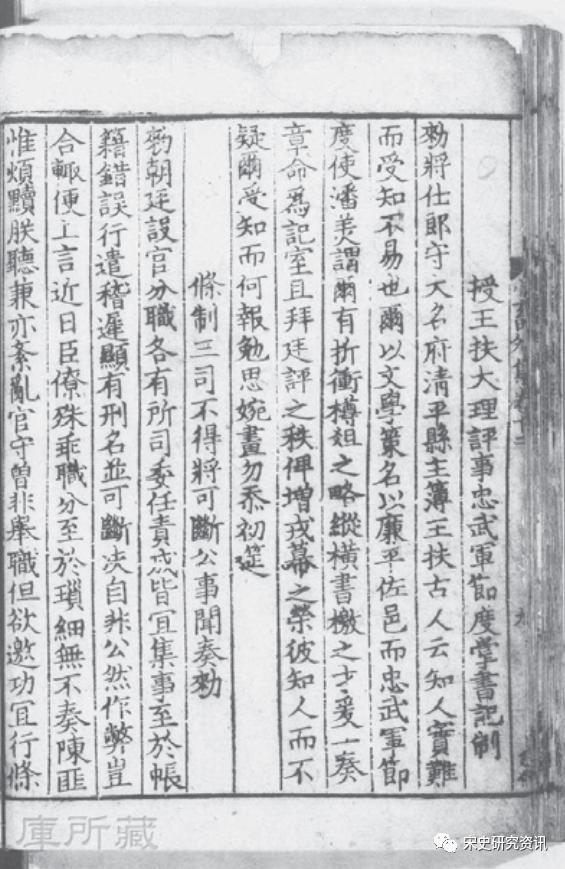 授王扶大理評事忠武軍節度掌書記制
勑將仕郎守大名府清平縣主簿王扶古人云知人實難
而受知不易也爾以文學策名以廉平佐邑而忠武軍節
度使潘美謂爾有折衝樽俎之略縱橫書檄之才爰一奏
章命爲記室且拜廷評之秩俾增戎幕之榮彼知人而不
疑爾受知而何報勉思婉畫勿忝初筵
條制三司不得將可斷公事聞奏勑
勑朝廷設官分職各有所司委任責成皆冝集事至於帳
籍錯誤行遣稽遲顯有刑名並可斷决自非公然作弊豈
合輙便上言近日臣僚殊乖職分至於瑣細無不奏陳匪
惟煩黷朕聽兼亦紊亂官守曾非舉職但欲邀功冝行條
庫所藏
宋史研究资讯